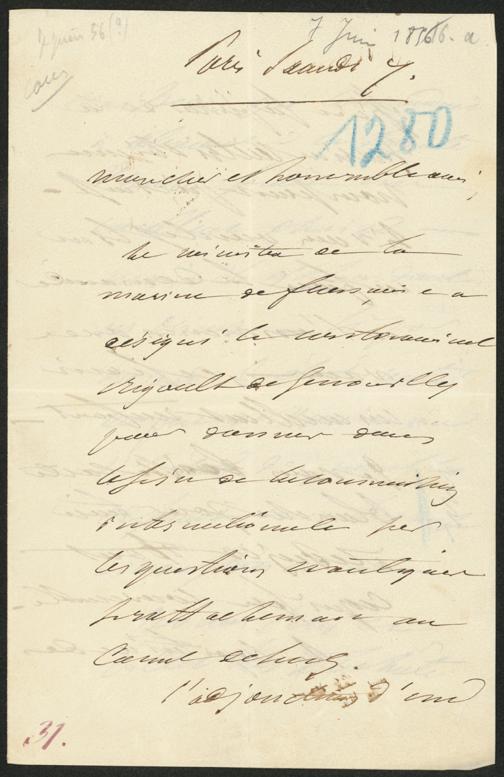 7 juin 56 (?)
7 Juin 1856. a
Paris Samedi 7.
1280
mon cher et honorable ami,
le ministre de la
marine de france a
désigné le contreamiral
rigault de Genouilly
pour donner dans
le sein de la commission
internationale
les questions nautiques
qui se rattachent au
Canal de Suez.
l'adjonction d'un
31.